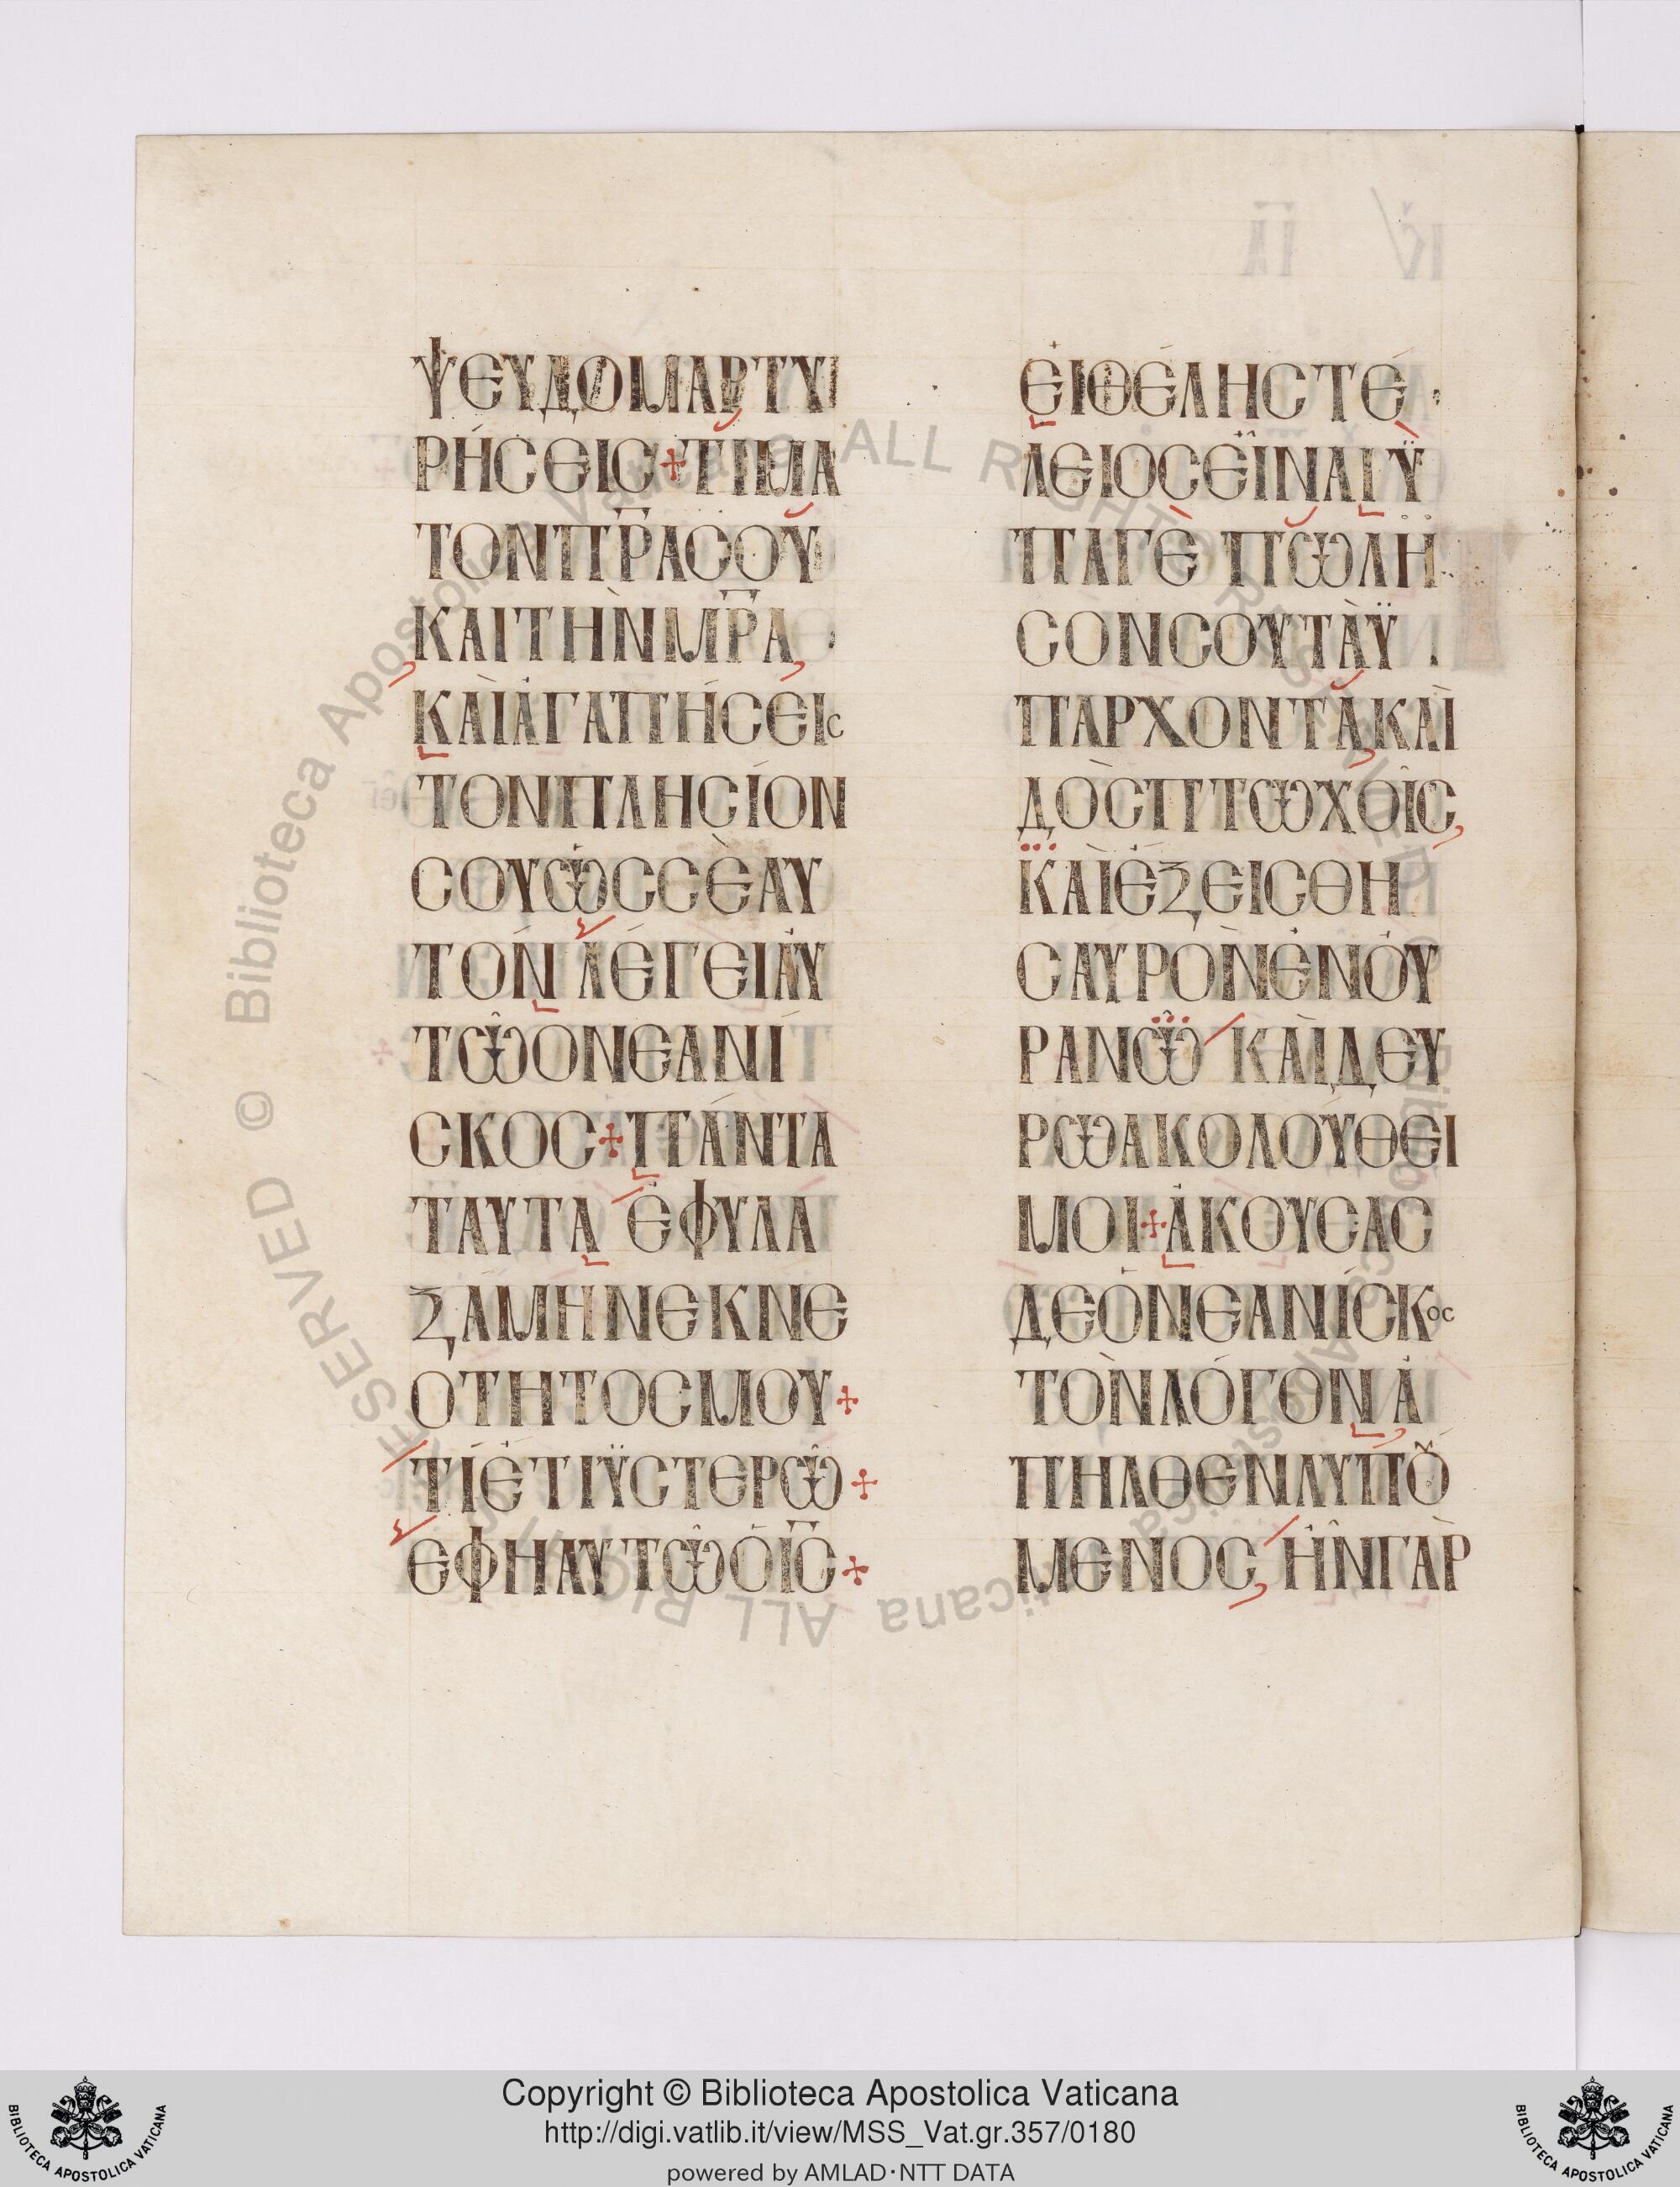 ΨΕΥΔΟΜΑΡΤΥ
ΡΉϹΕΙϹ+ΤΊΜΑ
ΤΟΝΠ̅Ρ̅ΑϹΟΥ
ΚΑΙΤῊΝΜ̅Ρ̅Α,
ΚΑῚἈΓΑΠΉϹΕΙϹ
ΤΟΝΠΛΗϹΊΟΝ
ϹΟΥὩϹϹῈΑΥ
ΤΌΝ ΛΈΓΕΙΑΥ
ΤΩ͂ΟΝΕΑΝΊ
ϹΚΟϹ+ΠΆΝΤΑ
ΤΑΥΤΑ ἘΦΥΛΑ
ΞΆΜΗΝΕΚΝΕ
ΟΤΗΤΟϹΜΟΥ+
ΤΊἘΤΙΫϹΤΕΡΩ͂+
ΕΦΗΑΥΤΩ͂ὉΙ̅Ϲ̅+
ἘΙΘΈΛΗϹΤΈ
ΛΕΙΟϹΕἾΝΑΙΫ
ΠΑΓΕ ΠΩΛΗ
ϹΟΝϹΟΥΤᾺΫ
ΠΑΡΧΟΝΤΑ,ΚΑῚ
ΔῸϹΠΤΩΧΟΙ͂Ϲ,
ΚΑῚἝΞΕΙϹΘΗ
ϹΑΥΡῸΝἘΝΟΥ̓
ΡΑΝΩ͂ ΚΑῚΔΕΥ
ΡΩΑΚΟΛΟΎΘΕΙ
ΜΟΙ+ἈΚΟΥϹΑϹ
ΔΕὉΝΕΑΝΊϹΚΟϹ
ΤῸΝΛΌΓΟΝ,Ἀ
ΠΗΛΘΕΝΛΥΠΟΎ
ΜΕΝΟϹ, ἮΝΓᾺΡ
Copyright © Biblioteca Apostolica Vaticana
http://digi.vatlib.it/view/MSS_Vat.gr.357/0180
powered by AMLAD·NTT DATA
BIBLIOTECA APOSTOLICA VATICANA
BIBLIOTECA APOSTOLICA VATICANA
© Biblioteca Apostolica Vaticana ALL RIGHTS RESERVED